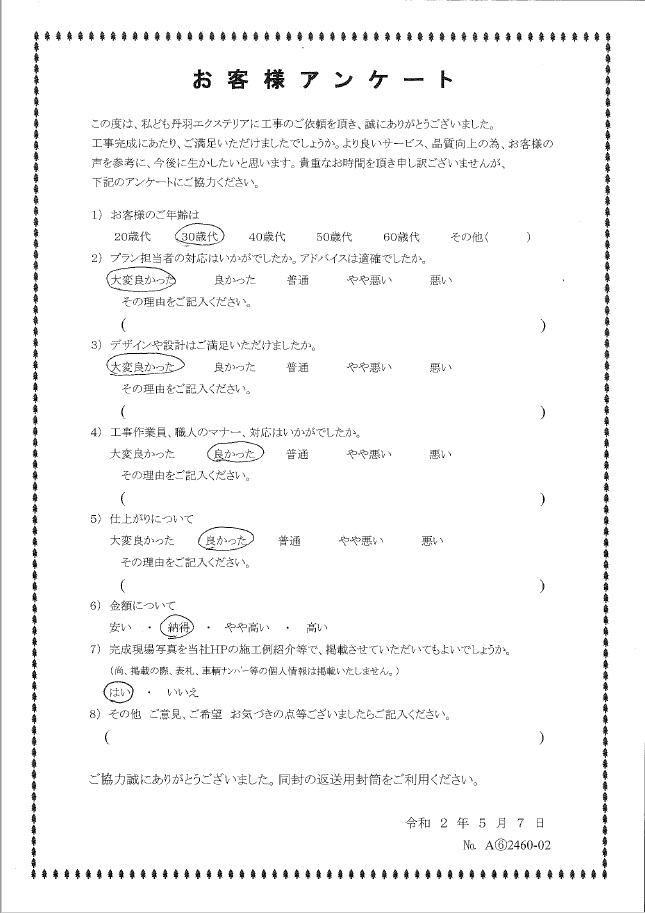 お客様アンケート
この度は、私ども丹羽エクステリアに工事のご依頼を頂き、誠にありがとうございました。
工事完成にあたり、ご満足いただけましたでしょうか。より良いサービス、品質向上の為、お客様の
声を参考に、今後に生かしたいと思います。貴重なお時間を頂き申し訳ございませんが、
下記のアンケートにご協力ください。
1) お客様のご年齢は
20歳代 30歳代 40歳代 50歳代 60歳代 その他( )
2) プラン担当者の対応はいかがでしたか。アドバイスは適確でしたか。
大変良かった 良かった 普通 やや悪い 悪い
その理由をご記入ください。
( )
3) デザインや設計はご満足いただけましたか。
大変良かった 良かった 普通 やや悪い 悪い
その理由をご記入ください。
( )
4) 工事作業員、職人のマナー、対応はいかがでしたか。
大変良かった 良かった 普通 やや悪い 悪い
その理由をご記入ください。
( )
5) 仕上がりについて
大変良かった 良かった 普通 やや悪い 悪い
その理由をご記入ください。
( )
6) 金額について
安い ・ 納得 ・ やや高い ・ 高い
7) 完成現場写真を当社HPの施工例紹介等で、掲載させていただいてもよいでしょうか。
(尚、掲載の際、表札、車輌ナンバー等の個人情報は掲載いたしません。)
はい ・ いいえ
8) その他 ご意見、ご希望 お気づきの点等ございましたらご記入ください。
( )
ご協力誠にありがとうございました。同封の返送用封筒をご利用ください。
令和 2 年 5 月 7 日
№ A⑥2460-02